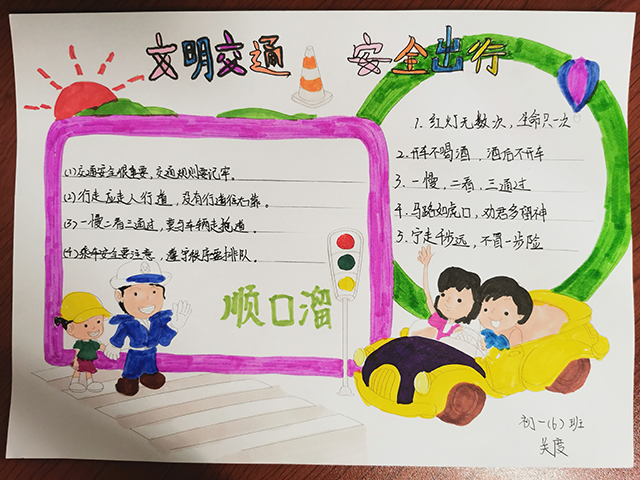 文明交通 安全出行
(1)交通安全很重要,交通规则要记牢。
(2)行走应走人行道,没有行道往右靠。
(3)一慢二看三通过,莫与车辆去抢道。
(4)乘车安全要注意,遵守秩序要排队。
顺口溜
1.红灯无数次,生命只一次
2.开车不喝酒,酒后不开车
3.一慢,二看,三通过
4.马路如虎口,劝君多留神
5.宁走千步远,不冒一步险
初一(6)班
关度